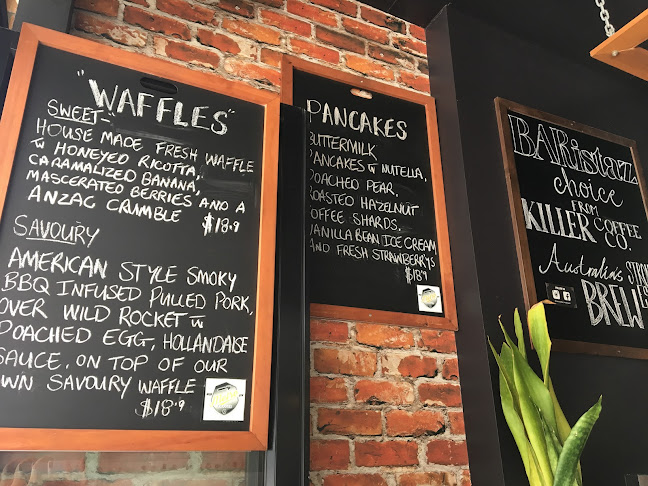 "WAFFLES"
SWEET-
HOUSE MADE FRESH WAFFLE
w HONEYED RICOTTA,
CARAMALIZED BANANA,
MASCERATED BERRIES AND A
ANZAC CRUMBLE $18.9
SAVOURY
AMERICAN STYLE SMOKY
BBQ INFUSED PULLED PORK,
OVER WILD ROCKET w
POACHED EGG, HOLLANDAISE
SAUCE. ON TOP OF OUR
OWN SAVOURY WAFFLE
$18.9
PANCAKES
BUTTERMILK
PANCAKES w NUTELLA,
POACHED PEAR,
ROASTED HAZELNUT
COFFEE SHARDS,
VANILLA BEAN ICE CREAM
AND FRESH STRAWBERRYS
$18.9
BARistaz
choice
FROM
KILLER COFFEE
CO.
Australia's
BREW